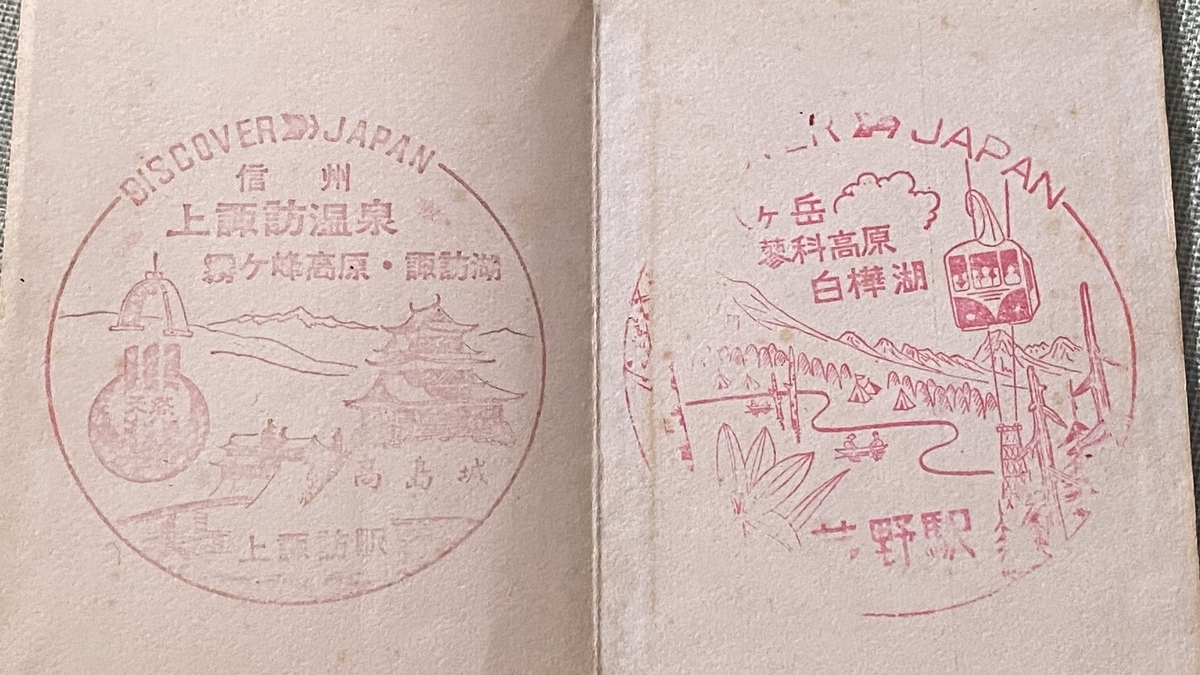 DISCOVER JAPAN
信州
上諏訪温泉
霧ケ峰高原・諏訪湖
天然
高島城
上諏訪駅
ER JAPAN
ヶ岳
蓼科高原
白樺湖
茅野駅